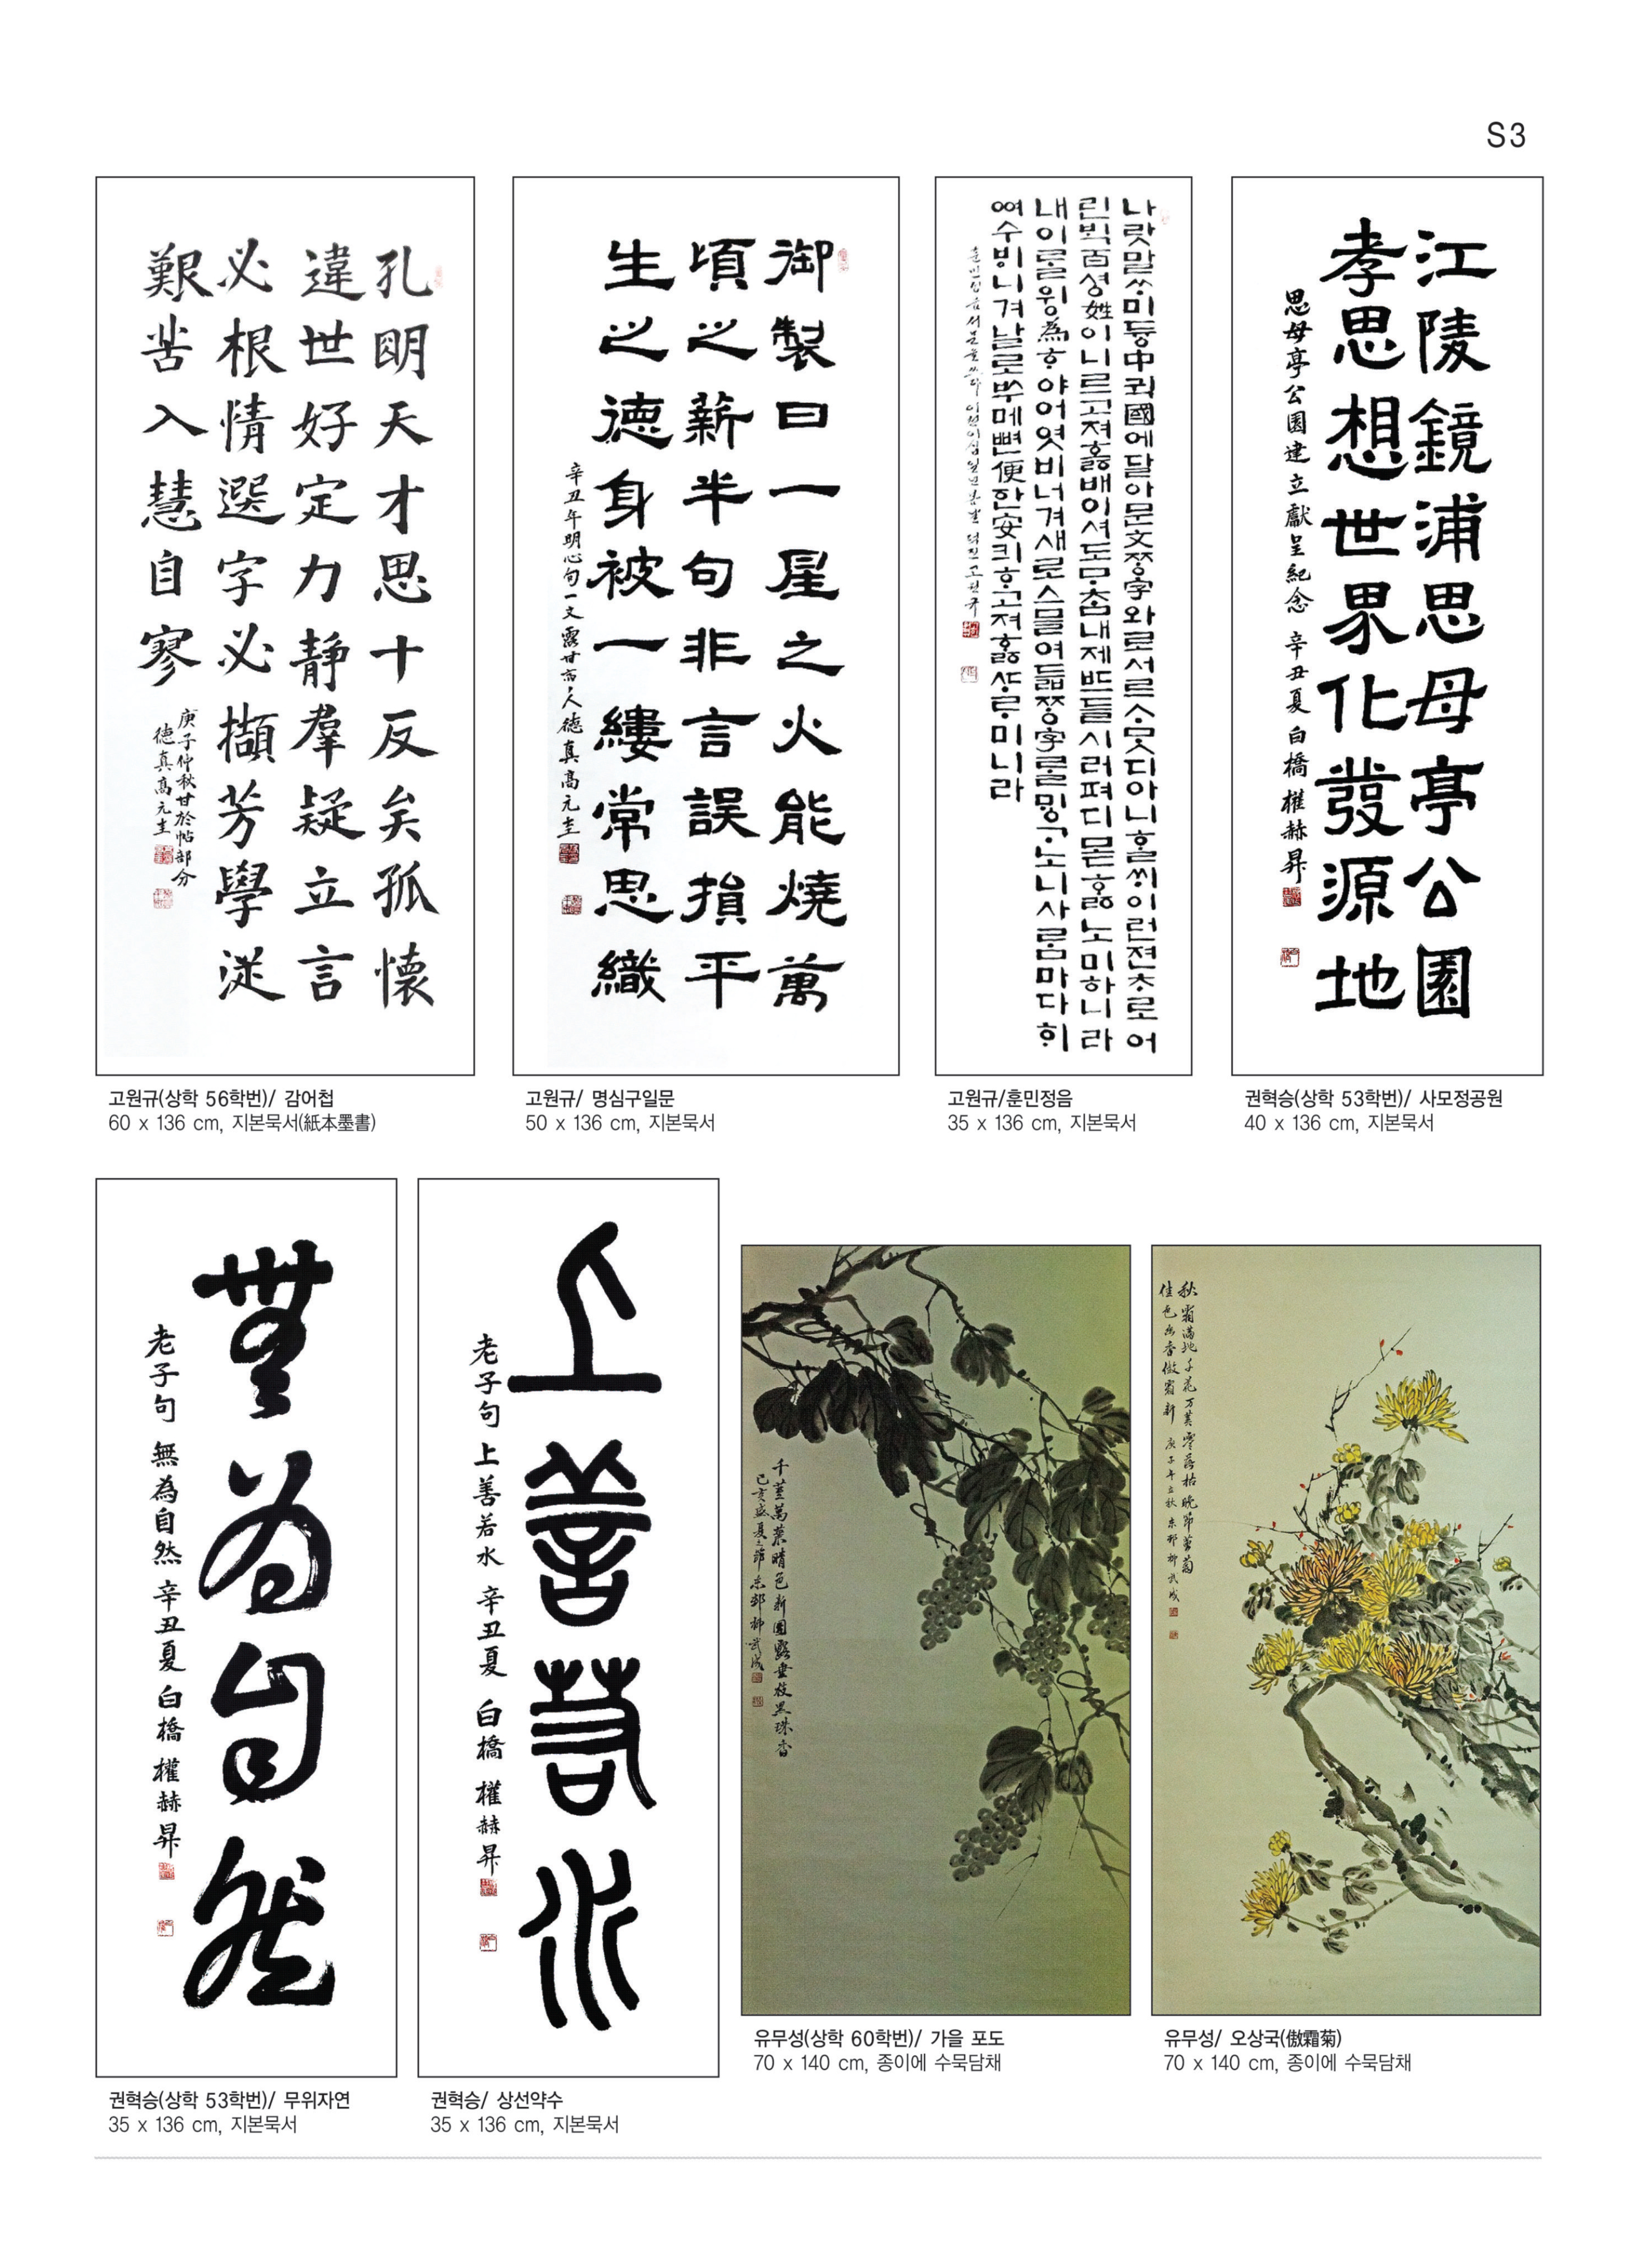 S3
孔明天才思十反矣孤懷
違世好定力靜羣疑立言
必根情選字必擷芳學從
艱苦入慧自寥
庚子仲秋甘於帖部分
德真高元圭
고원규(상학 56학번)/ 감어첩
60 x 136 cm, 지본묵서(紙本墨書)
御製曰一星之火能燒萬
頃之薪半句非言誤損平
生之德身被一縷常思織
辛丑年明心句一文 露甘 人德真高元圭
고원규/ 명심구일문
50 x 136 cm, 지본묵서
나랏말ᄊᆞ미듕中귁國에달아문文ᄍᆞᆼ字와로서르ᄉᆞᄆᆞᆺ디아니ᄒᆞᆯᄊᆡ이런젼ᄎᆞ로어
린ᄇᆡᆨ百셩姓이니르고져호ᇙ배이셔도ᄆᆞᄎᆞᆷ내제ᄠᅳ들시러펴디몯ᄒᆞᇙ노미하니라
내이ᄅᆞᆯ윙為ᄒᆞ야어엿비너겨새로스믈여듧ᄍᆞᆼ字ᄅᆞᆯᄆᆡᇰᄀᆞ노니사ᄅᆞᆷ마다ᄒᆡ
ᅇᅧ수ᄫᅵ니겨날로ᄡᅮ메뼌便한安킈ᄒᆞ고져ᄒᆞᇙᄯᆞᄅᆞ미니라
고원규/훈민정음
35 x 136 cm, 지본묵서
江陵鏡浦思母亭公園
孝思想世界化發源地
思母亭公園建立獻呈紀念 辛丑夏 白橋 權赫昇
권혁승(상학 53학번)/ 사모정공원
40 x 136 cm, 지본묵서
無為自然
老子句 無為自然 辛丑夏 白橋 權赫昇
권혁승(상학 53학번)/ 무위자연
35 x 136 cm, 지본묵서
上善若水
老子句 上善若水 辛丑夏 白橋 權赫昇
권혁승/ 상선약수
35 x 136 cm, 지본묵서
千莖萬葉晴色新園 垂枝黑珠香
己亥盛夏之節 東邨 柳武成
유무성(상학 60학번)/ 가을 포도
70 x 140 cm, 종이에 수묵담채
秋霜滿地千花万葉零落枯晩節黃菊
佳色幽香傲霜新 庚子年立秋 東邨柳武成
유무성/ 오상국(傲霜菊)
70 x 140 cm, 종이에 수묵담채